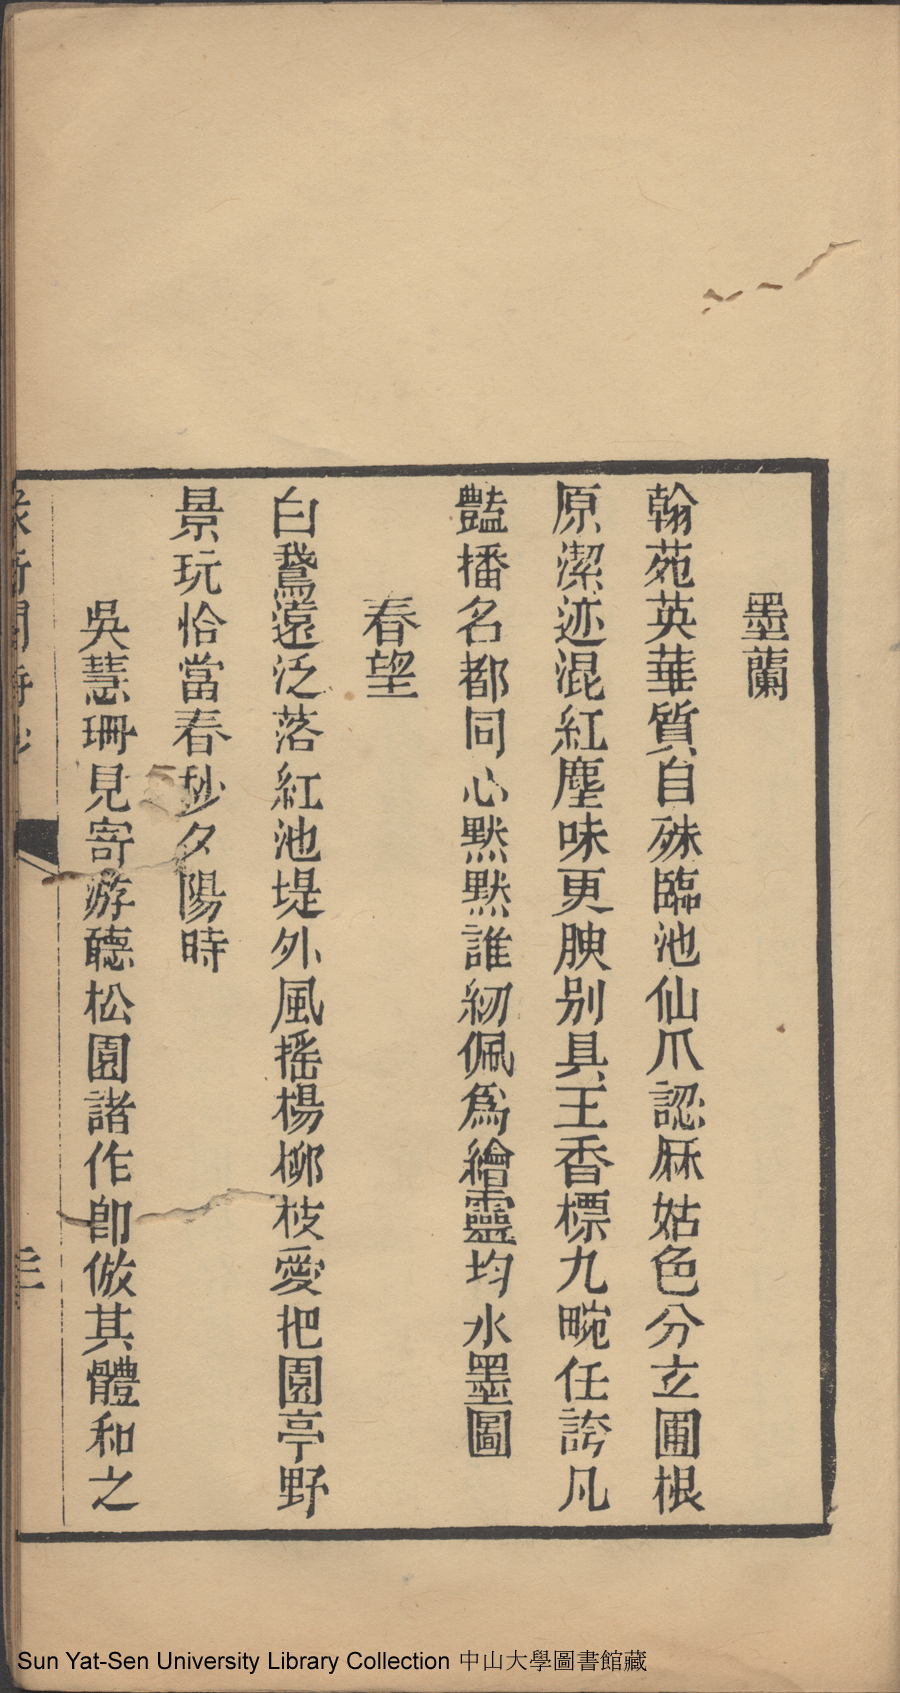 墨蘭
翰苑英華質自殊臨池仙爪認厤姑色分立圃根
原潔迹混紅塵味更腴别具王香標九畹任誇凡
豔播名都同心黙黙誰紉佩爲繪靈均水墨圖
春望
白鵞遠泛落紅池堤外風摇楊柳枝愛把園亭野
景玩恰當春秒夕陽時
吳慧珊見寄游聽松園諸作卽倣其體和之
Sun Yat-Sen University Library Collection 中山大學圖書館藏